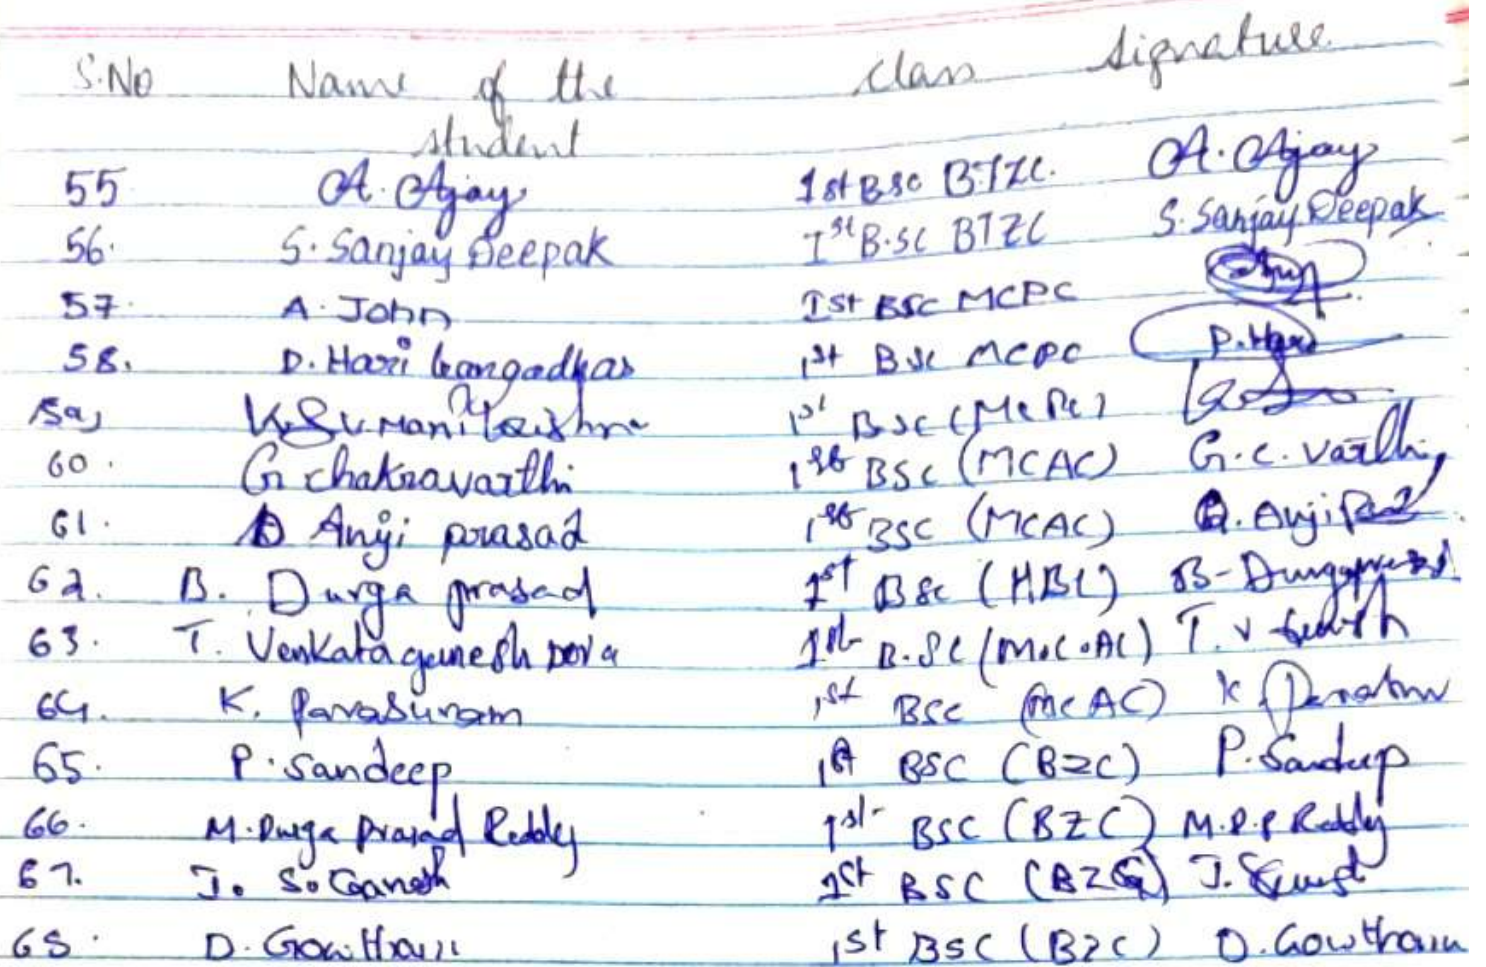 S.No Name of the class Signature
student
55 A. Ajay 1st BSC BTZC. A. Ajay
56. S. Sanjay Deepak Ist B.SC BTZC S. Sanjay Deepak
57. A. John Ist BSC MCPC
58. D. Hari Gangadhar 1st BSC MCPC D. Hari
59, K.S.V. Mani Krishna 1st BSC (MCPC)
60. G. chakravarthi 1st BSC (MCAC) G.C. Varthi
61. D Anji prasad 1st BSC (MCAC) D. Anji
62. B. Durga prasad 1st BSC (HBC) B. Durgaprasad
63. T. Venkataganesh Dora 1st B.SC (M.C.AC) T. V
64. K. Parasuram 1st BSC (MCAC) K
65. P. Sandeep 1st BSC (BZC) P. Sandeep
66. M. Durga Prasad Reddy 1st BSC (BZC) M.D.P Reddy
67. J. S. Ganesh 1st BSC (BZC) J.
68. D. Gowtham 1st BSC (BZC) D. Gowtham